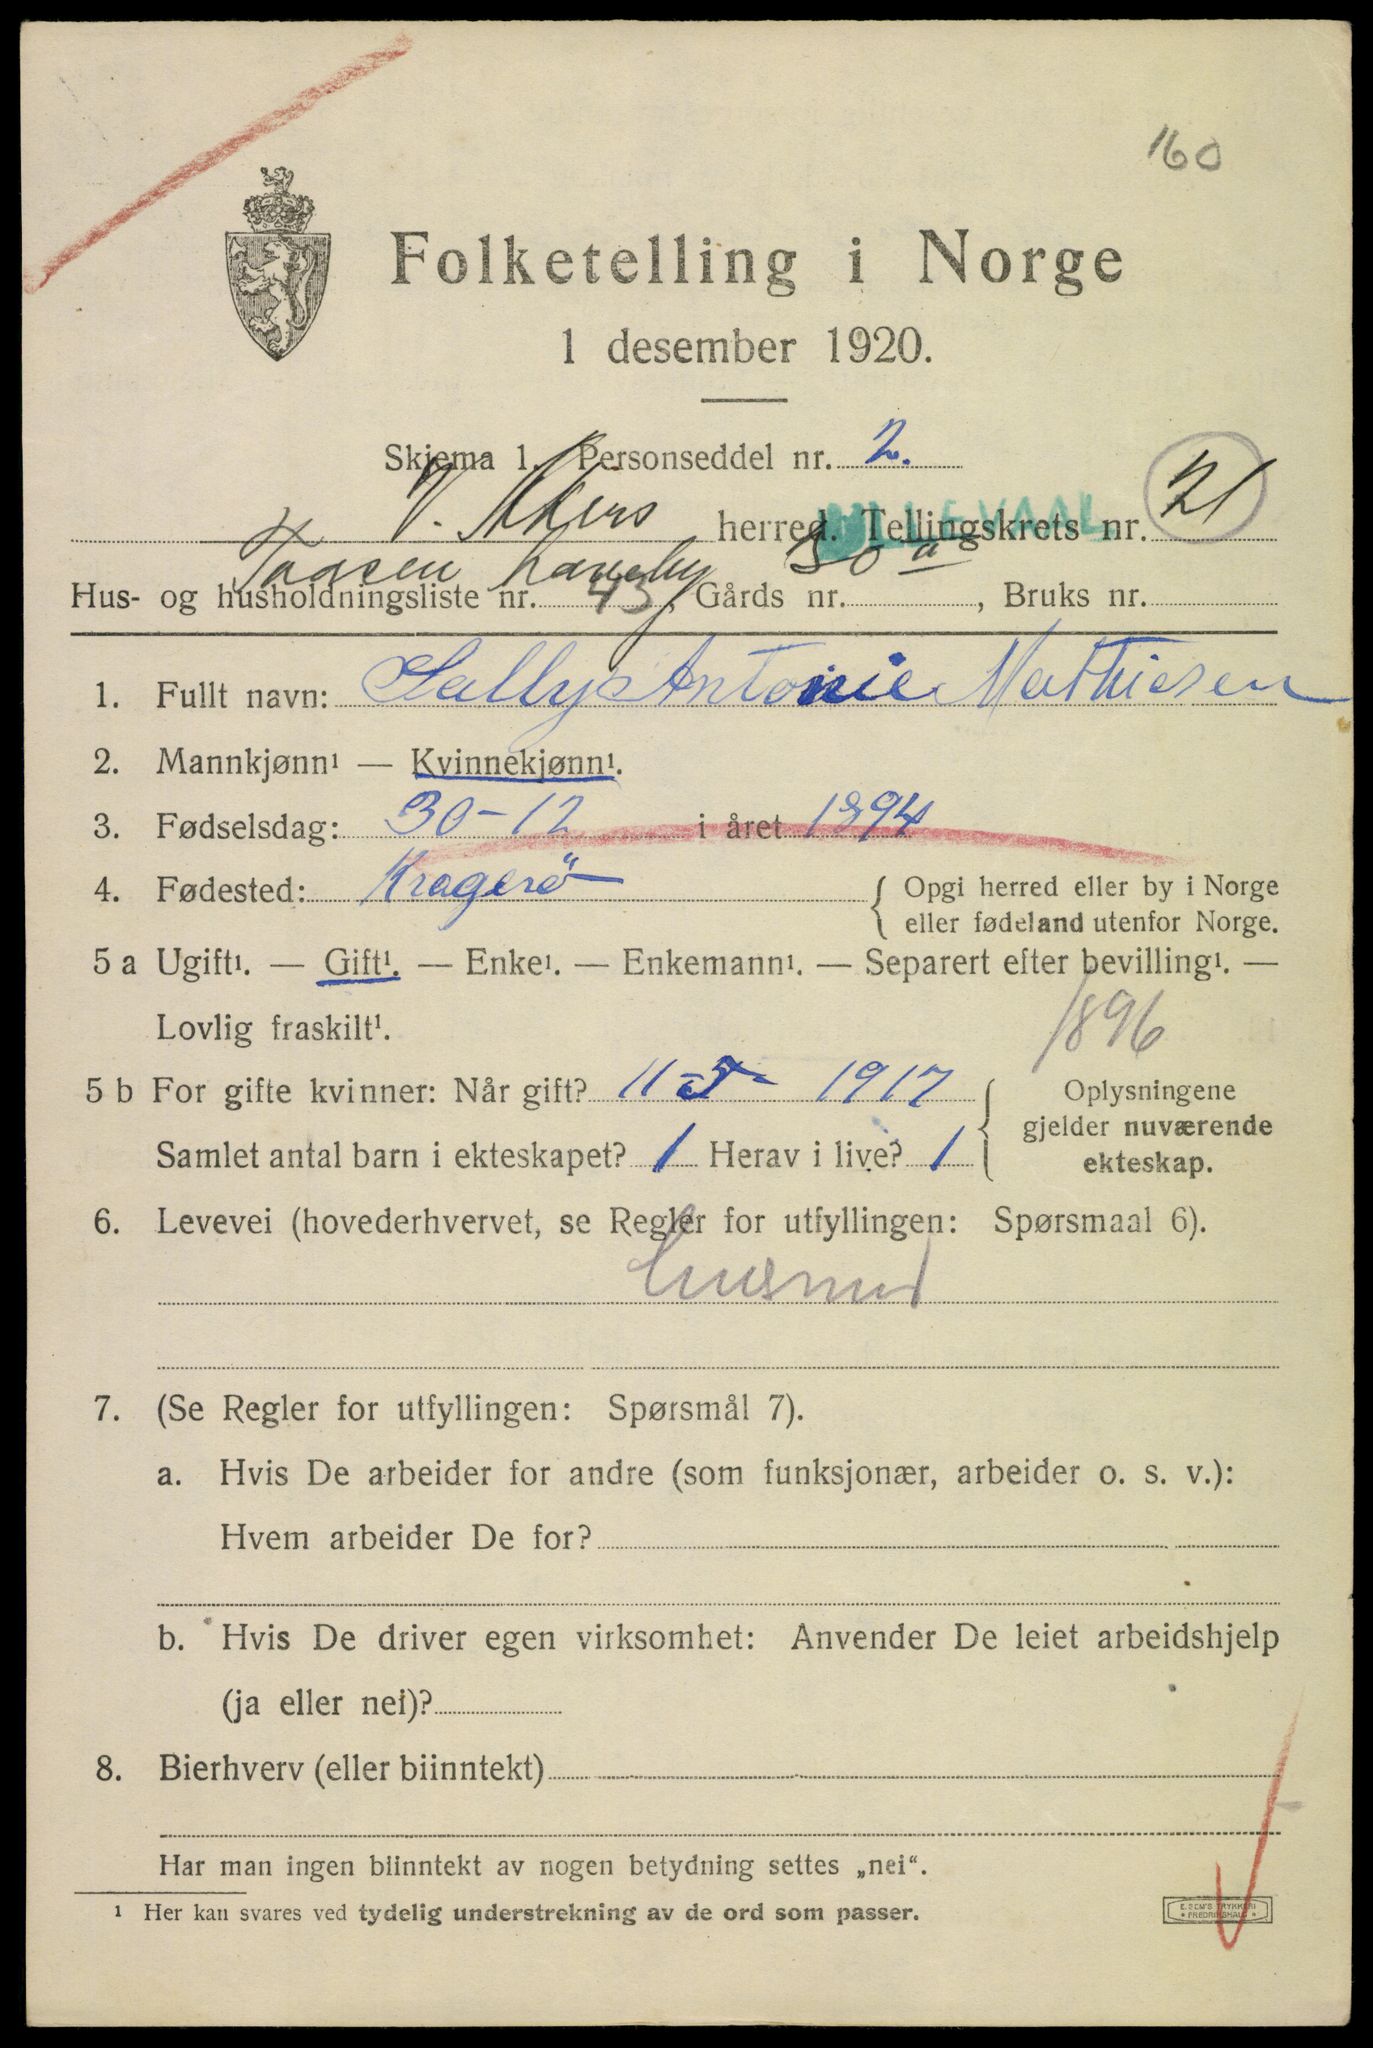 160
Folketelling i Norge
1 desember 1920.
Skjema 1. Personseddel nr. 2.
V. Akers herred. Tellingskrets nr. 21
ULLEVAAL
Taasen haveby 30 a
Hus- og husholdningsliste nr. 43, Gårds nr. , Bruks nr.
1. Fullt navn: Sally Antonie Mathiesen
2. Mannkjønn¹ — Kvinnekjønn¹.
3. Fødselsdag: 30-12 i året 1894
4. Fødested: Kragerö { Opgi herred eller by i Norge
eller fødeland utenfor Norge.
5 a Ugift¹. — Gift¹. — Enke¹. — Enkemann¹. — Separert efter bevilling¹. —
Lovlig fraskilt¹.
1896
5 b For gifte kvinner: Når gift? 11 - 1917
Samlet antal barn i ekteskapet? 1 Herav i live? 1
Oplysningene
gjelder nuværende
ekteskap.
6. Levevei (hovederhvervet, se Regler for utfyllingen: Spørsmaal 6).
husmor
7. (Se Regler for utfyllingen: Spørsmål 7).
a. Hvis De arbeider for andre (som funksjonær, arbeider o. s. v.):
Hvem arbeider De for?
b. Hvis De driver egen virksomhet: Anvender De leiet arbeidshjelp
(ja eller nei)?
8. Bierhverv (eller biinntekt)
Har man ingen biinntekt av nogen betydning settes „nei“.
¹ Her kan svares ved tydelig understrekning av de ord som passer.
E. SEM'S TRYKKERI
FREDRIKSHALD